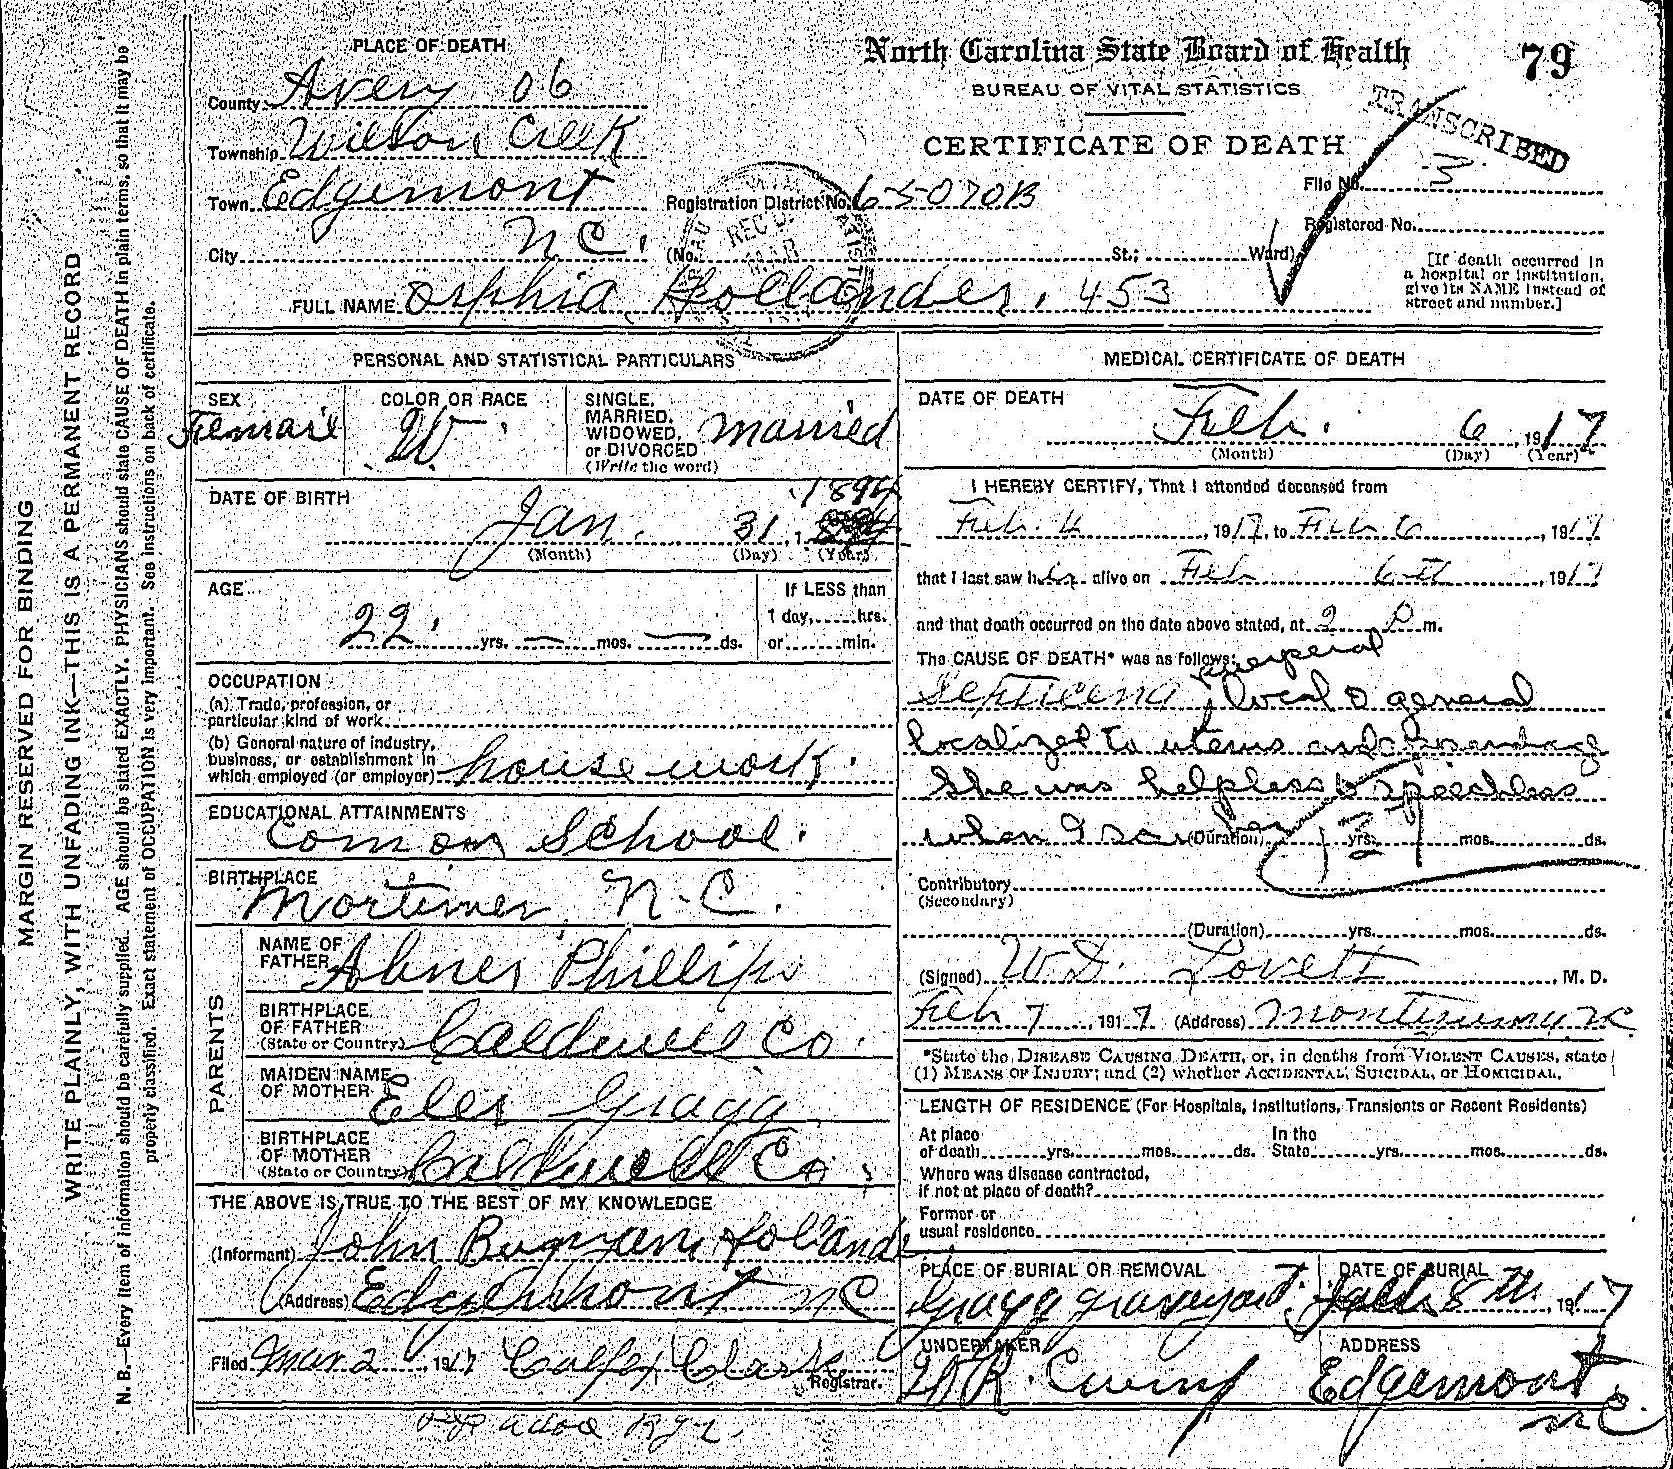 PLACE OF DEATH
County Avery 06
Township Wilson Creek
Town Edgemont
City N C.
North Carolina State Board of Health
79
BUREAU OF VITAL STATISTICS
CERTIFICATE OF DEATH
TRANSCRIBED
File No. 3
Registration District No. 65070B
Registered No.
(No. St.; Ward)
[If death occurred in
a hospital or institution,
give its NAME instead of
street and number.]
FULL NAME Orphia Hollander. 453
REC'D
MAR
MARGIN RESERVED FOR BINDING
WRITE PLAINLY, WITH UNFADING INK—THIS IS A PERMANENT RECORD
N. B.—Every item of information should be carefully supplied. AGE should be stated EXACTLY. PHYSICIANS should state CAUSE OF DEATH in plain terms, so that it may be
properly classified. Exact statement of OCCUPATION is very important. See instructions on back of certificate.
PERSONAL AND STATISTICAL PARTICULARS
SEX
Femail
COLOR OR RACE
W.
SINGLE,
MARRIED,
WIDOWED,
or DIVORCED
(Write the word)
married
DATE OF BIRTH
Jan. 31, 1894
(Month) (Day) (Year)
AGE
22. yrs. — mos. — ds.
If LESS than
1 day, hrs.
or min.
OCCUPATION
(a) Trade, profession, or
particular kind of work
(b) General nature of industry,
business, or establishment in
which employed (or employer) house work.
EDUCATIONAL ATTAINMENTS
Comon School.
BIRTHPLACE
Mortimer, N.C.
PARENTS
NAME OF
FATHER Abner Phillips
BIRTHPLACE
OF FATHER
(State or Country) Caldwell Co.
MAIDEN NAME
OF MOTHER Eler Gragg
BIRTHPLACE
OF MOTHER
(State or Country) Caldwell Co.
THE ABOVE IS TRUE TO THE BEST OF MY KNOWLEDGE
(Informant) John Bunyan Hollande
(Address) Edgemont NC
Filed Mar 2, 1917 Clark
Registrar.
MEDICAL CERTIFICATE OF DEATH
DATE OF DEATH
Feb. 6, 1917
(Month) (Day) (Year)
I HEREBY CERTIFY, That I attended deceased from
Feb. 4, 1917, to Feb 6, 1917
that I last saw her alive on Feb 6th, 1917
and that death occurred on the date above stated, at 2 P m.
The CAUSE OF DEATH* was as follows:
puerperal
Septicema local & general
localized to uterus and apendage
She was helpless & speechless
when I saw her (Duration) yrs. mos. ds.
137
Contributory
(Secondary)
(Duration) yrs. mos. ds.
(Signed) W.D. Lovett, M. D.
Feb 7, 1917 (Address) NC
*State the DISEASE CAUSING DEATH, or, in deaths from VIOLENT CAUSES, state
(1) MEANS OF INJURY; and (2) whether ACCIDENTAL, SUICIDAL, or HOMICIDAL.
LENGTH OF RESIDENCE (For Hospitals, Institutions, Transients or Recent Residents)
At place
of death yrs. mos. ds.
In the
State yrs. mos. ds.
Where was disease contracted,
if not at place of death?
Former or
usual residence
PLACE OF BURIAL OR REMOVAL
Gragg graveyard.
DATE OF BURIAL
Feb. 8th, 1917
UNDERTAKER
ADDRESS
Edgemont.
N.C.